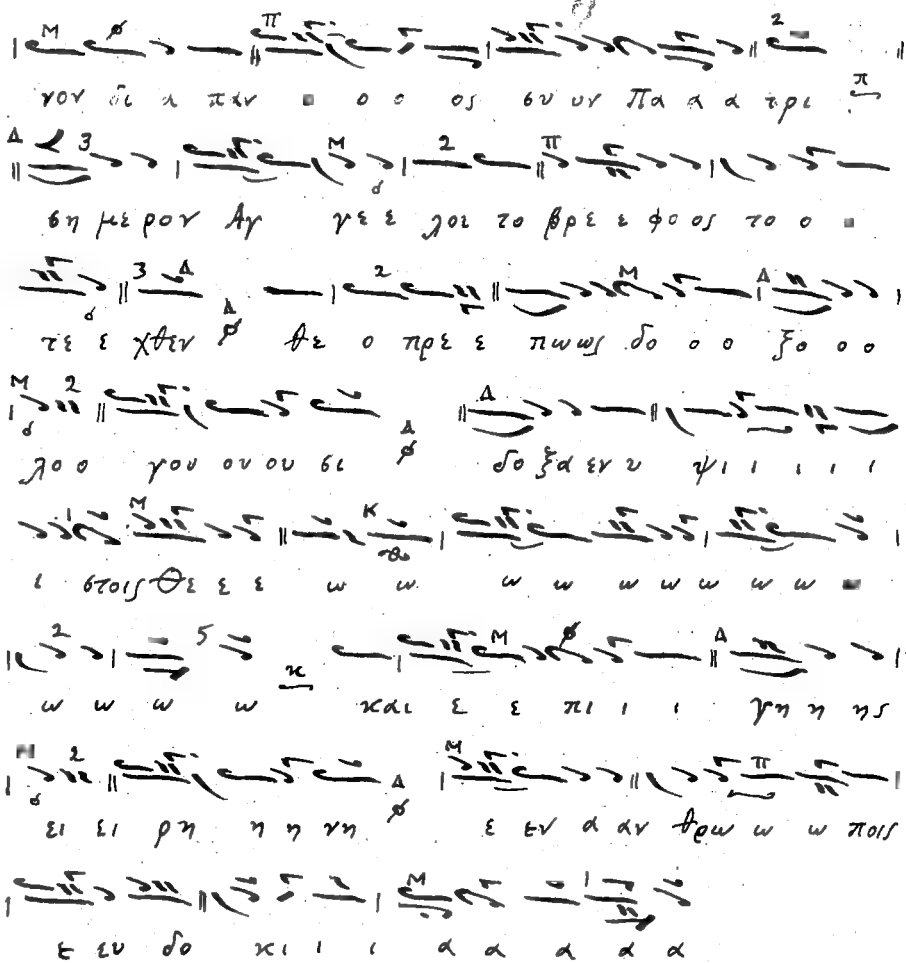 γον δι α παν ο ο ος συ υν Πα α α τρι
ση με ρον Αγ γε ε λοι το βρε ε φο ος το ο
τε ε χθεν θε ο πρε ε πω ως δο ο ο ξο ο ο
λο ο γου ου ου σι δο ξα εν υ ψι ι ι ι ι
ι στοις Θε ε ε ω ω ω ω ω ω ω ω ω
ω ω ω ω και ε ε πι ι ι γη η ης
ει ει ρη η η νη ε εν α αν θρω ω ω ποις
ε ευ δο κι ι ι α α α α α